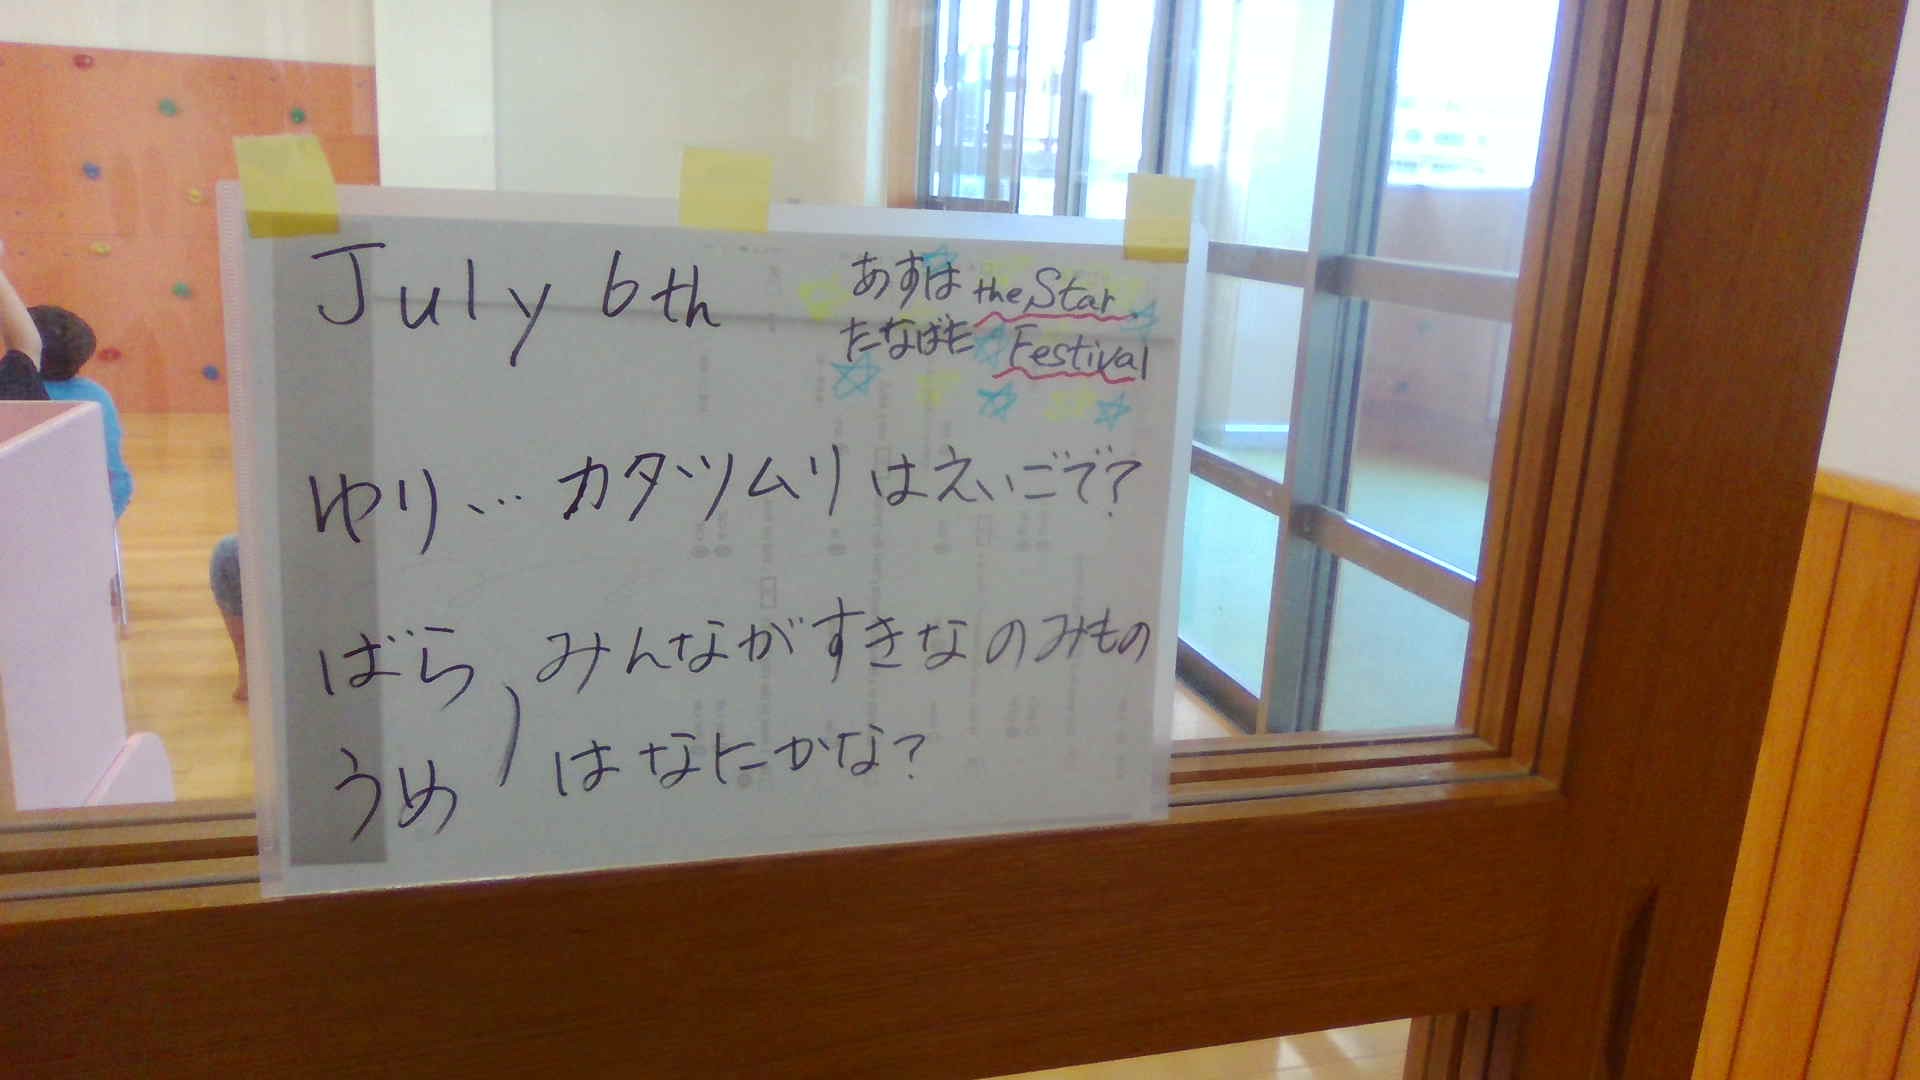 July 6th
あすは the Star
たなばた Festival
ゆり… カタツムリはえいごで?
ばら, みんながすきなのみもの
うめ はなにかな?